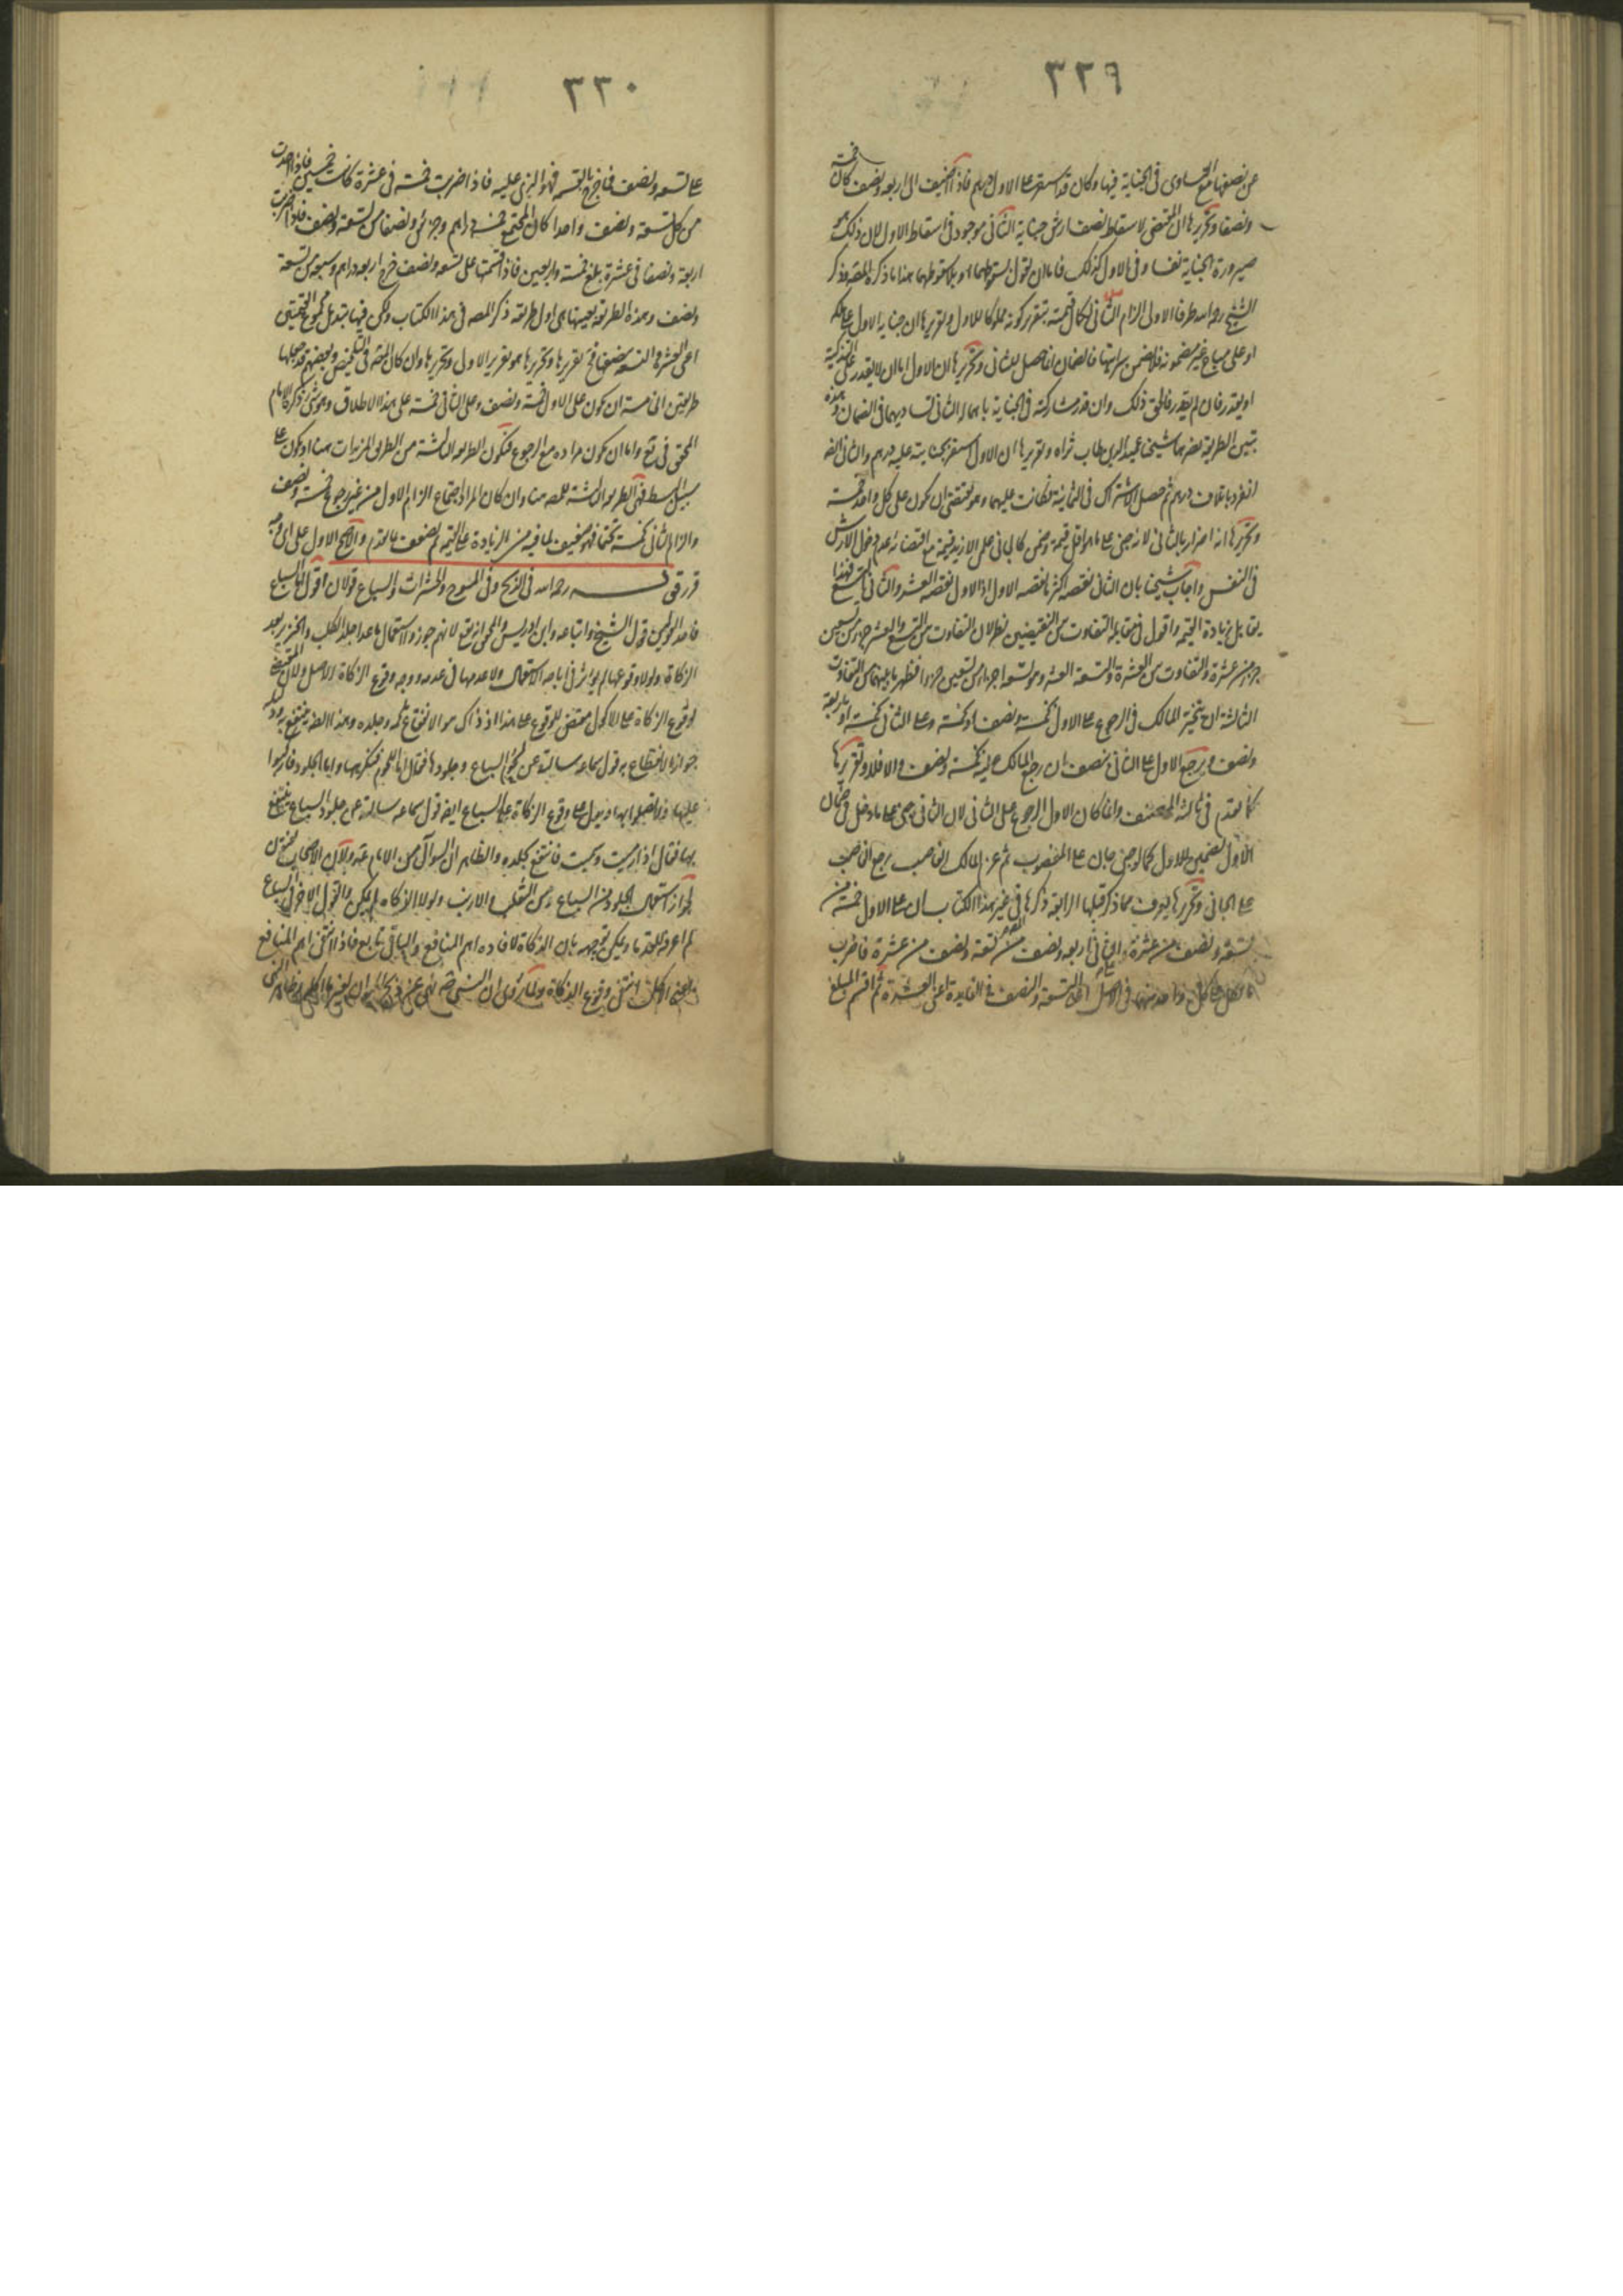 ٣٢٩
عن نصفها مع التساوى فى الجناية فيها وكان قد استقر على الاول درهم فاذا اضيف الى اربعة ونصف كان خمسة
ونصفا وتحريرها ان المقتضى لاسقاط نصف ارش جناية الثانى موجود فى اسقاط الاول لان ذلك هو
صيرورة الجناية نفسا وفى الاول كذلك فاما ان نقول بسقوطهما او بعدم سقوطهما هذا ما ذكره المصنف وذكر
الشيخ رحمه الله طرقا الاولى الزام الثانى بكمال قيمته بتقدير كونه مملوكا للاول وتقريرها ان جناية الاول
او على مباح غير مضمونة فلا يضمن سرايتها فالضمان انما حصل للثانى وتحريرها ان الاول اما ان لا يقدر على التذكية
او يقدر فان لم يقدر فالحق ذلك وان قدر شاركه فى الجناية باهماله الثانى تساويهما فى الضمان وهذه
الطريقة شيخنا عميد الدين طاب ثراه وتقريرها ان الاول استقر بجنايته عليه درهم والثانى ايضا
انفرد باتلاف درهم ثم حصل الاشتراك فى الثمانية فكانت عليهما وهو يقتضى ان يكون على كل واحد خمسة
وتحريرها انه اضرار بالثانى لانه جنى على ما هو اقل قيمة وضمن كالجانى على الازيد قيمة مع اقتضائه عدم دخول الارش
فى النفس واجاب شيخنا بان الثانى نقصه اكثر مما نقصه الاول اذ الاول نقصه العشر والثانى التسع فهذا
يقابل زيادة القيمة واقول فى مقابلة التفاوت من النقيصتين نظر لان التفاوت بين التسع والعشر جزء من تسعين
جزء من عشرة والتفاوت بين العشرة والتسعة العشر وهو تسعة اجزاء من تسعين جزءا فظهر ما بينهما من التفاوت
الثالثة ان يتخير المالك فى الرجوع على الاول بخمسة ونصف او خمسة وعلى الثانى بخمسة او باربعة
ونصف ويرجع الاول على الثانى بنصف ان رجع المالك عليه بخمسة ونصف والا فلا وتقريرها
كما تقدم فى ثالثة المصنف وانما كان للاول الرجوع على الثانى لان الثانى جنى على ما دخل فى ضمان
الاول فيضمن للاول كما لو جنى جان على المغصوب ثم غرم المالك الغاصب يرجع الغاصب
على الجانى وتحريرها يعرف مما ذكر قبلها الرابعة ذكرها فى غير هذا الكتاب ان على الاول خمسة من
تسعة ونصف من عشرة والثانى اربعة ونصف من تسعة ونصف من عشرة فاضرب
ما على كل واحد منهما فى الاصل اعنى التسعة والنصف فى الفايدة اعنى العشرة ثم اقسم المبلغ
٣٣٠
على تسعة ونصف فما خرج بالقسمة فهو الذى عليه فاذا ضربت خمسة فى عشرة كانت خمسين فاذا اخذت
من كل تسعة ونصف واحدا كان المجتمع خمسة دراهم وجزئين ونصفا من تسعة ونصف فاذا ضربت
اربعة ونصفا فى عشرة بلغ خمسة واربعين فاذا قسمتها على تسعة ونصف خرج اربعة دراهم وسبعة من تسعة
ونصف وهذه الطريقة بعينها هى اول طريقة ذكر المصنف فى هذا الكتاب ولكن فيها تبديل مجموع القيمتين
اعنى العشرة والتسعة تقريرها وتحريرها هو تقرير الاول وتحريرها وان كان المصنف فى التلخيص وبعضهم قد جعلها
طريقتين الخامسة ان يكون على الاول خمسة ونصف وعلى الثانى خمسة على هذا الاطلاق وهو شىء ذكره الامام
المحقق فى يع واما ان يكون مراده مع الرجوع فتكون الطريقة الثالثة من الطرق المزبرات هنا او يكون على
سبيل البسط فهى الطريقة الثالثة للمصنف هنا وان كان المراد اجتماع الزام الاول من غير رجوع خمسة ونصف
والزام الثانى بخمسة حتما فهو ضعيف لما فيه من الزيادة على القيمة ثم لضعف ما تقدم والاصح الاول على اى وجه
قررقى قـــــال رحمه الله فى الذبح وفى المسوخ والحشرات والسباع قولان اقول اما السباع
فاحد القولين قول الشيخ واتباعه وابن ادريس والمحق انه يقع لانهم جوزوا استعمال ما عدا جلد الكلب والخنزير بعد
الزكاة ولولا وقوعها لم يؤثر فى اباحة الاستعمال ولا عدمها فى عدمه ووجه وقوع الزكاة الاصل ولان المقتضى
لوقوع الزكاة على الاكول مقتض للوقوع على هذا اذ ذاك هو الانتفاع بلحمه وجلده وهذا ايضا ينتفع بجلده
جواز الانتفاع به قول سماعة سالته عن لحوم السباع وجلودها فقال اما اللحوم فنكرهها واما الجلود فاركبوا
عليها ولا تصلوا بها ويدل على وقوع الزكاة على السباع ايضا قول سماعة سالته عن جلود السباع ينتفع
بها فقال اذا رميت وسميت فانتفع بجلده والظاهر ان السوال من الامام عليه ولان الاصحاب
لجواز استعمال الجلود من السباع ومن الثعلب والارنب ولولا الزكاة لم يكن والقول الاخر فى السباع
لم اعرفه للقدما ويمكن توجيهه بان الزكاة لافاده اهم المنافع والباقى تابع فاذا انتفى اهم المنافع
اعنى الاكل انتفى وقوع الزكاة ولما روى ان النبى صلعم نهى عن ذبح الحيوان لغير الاكل